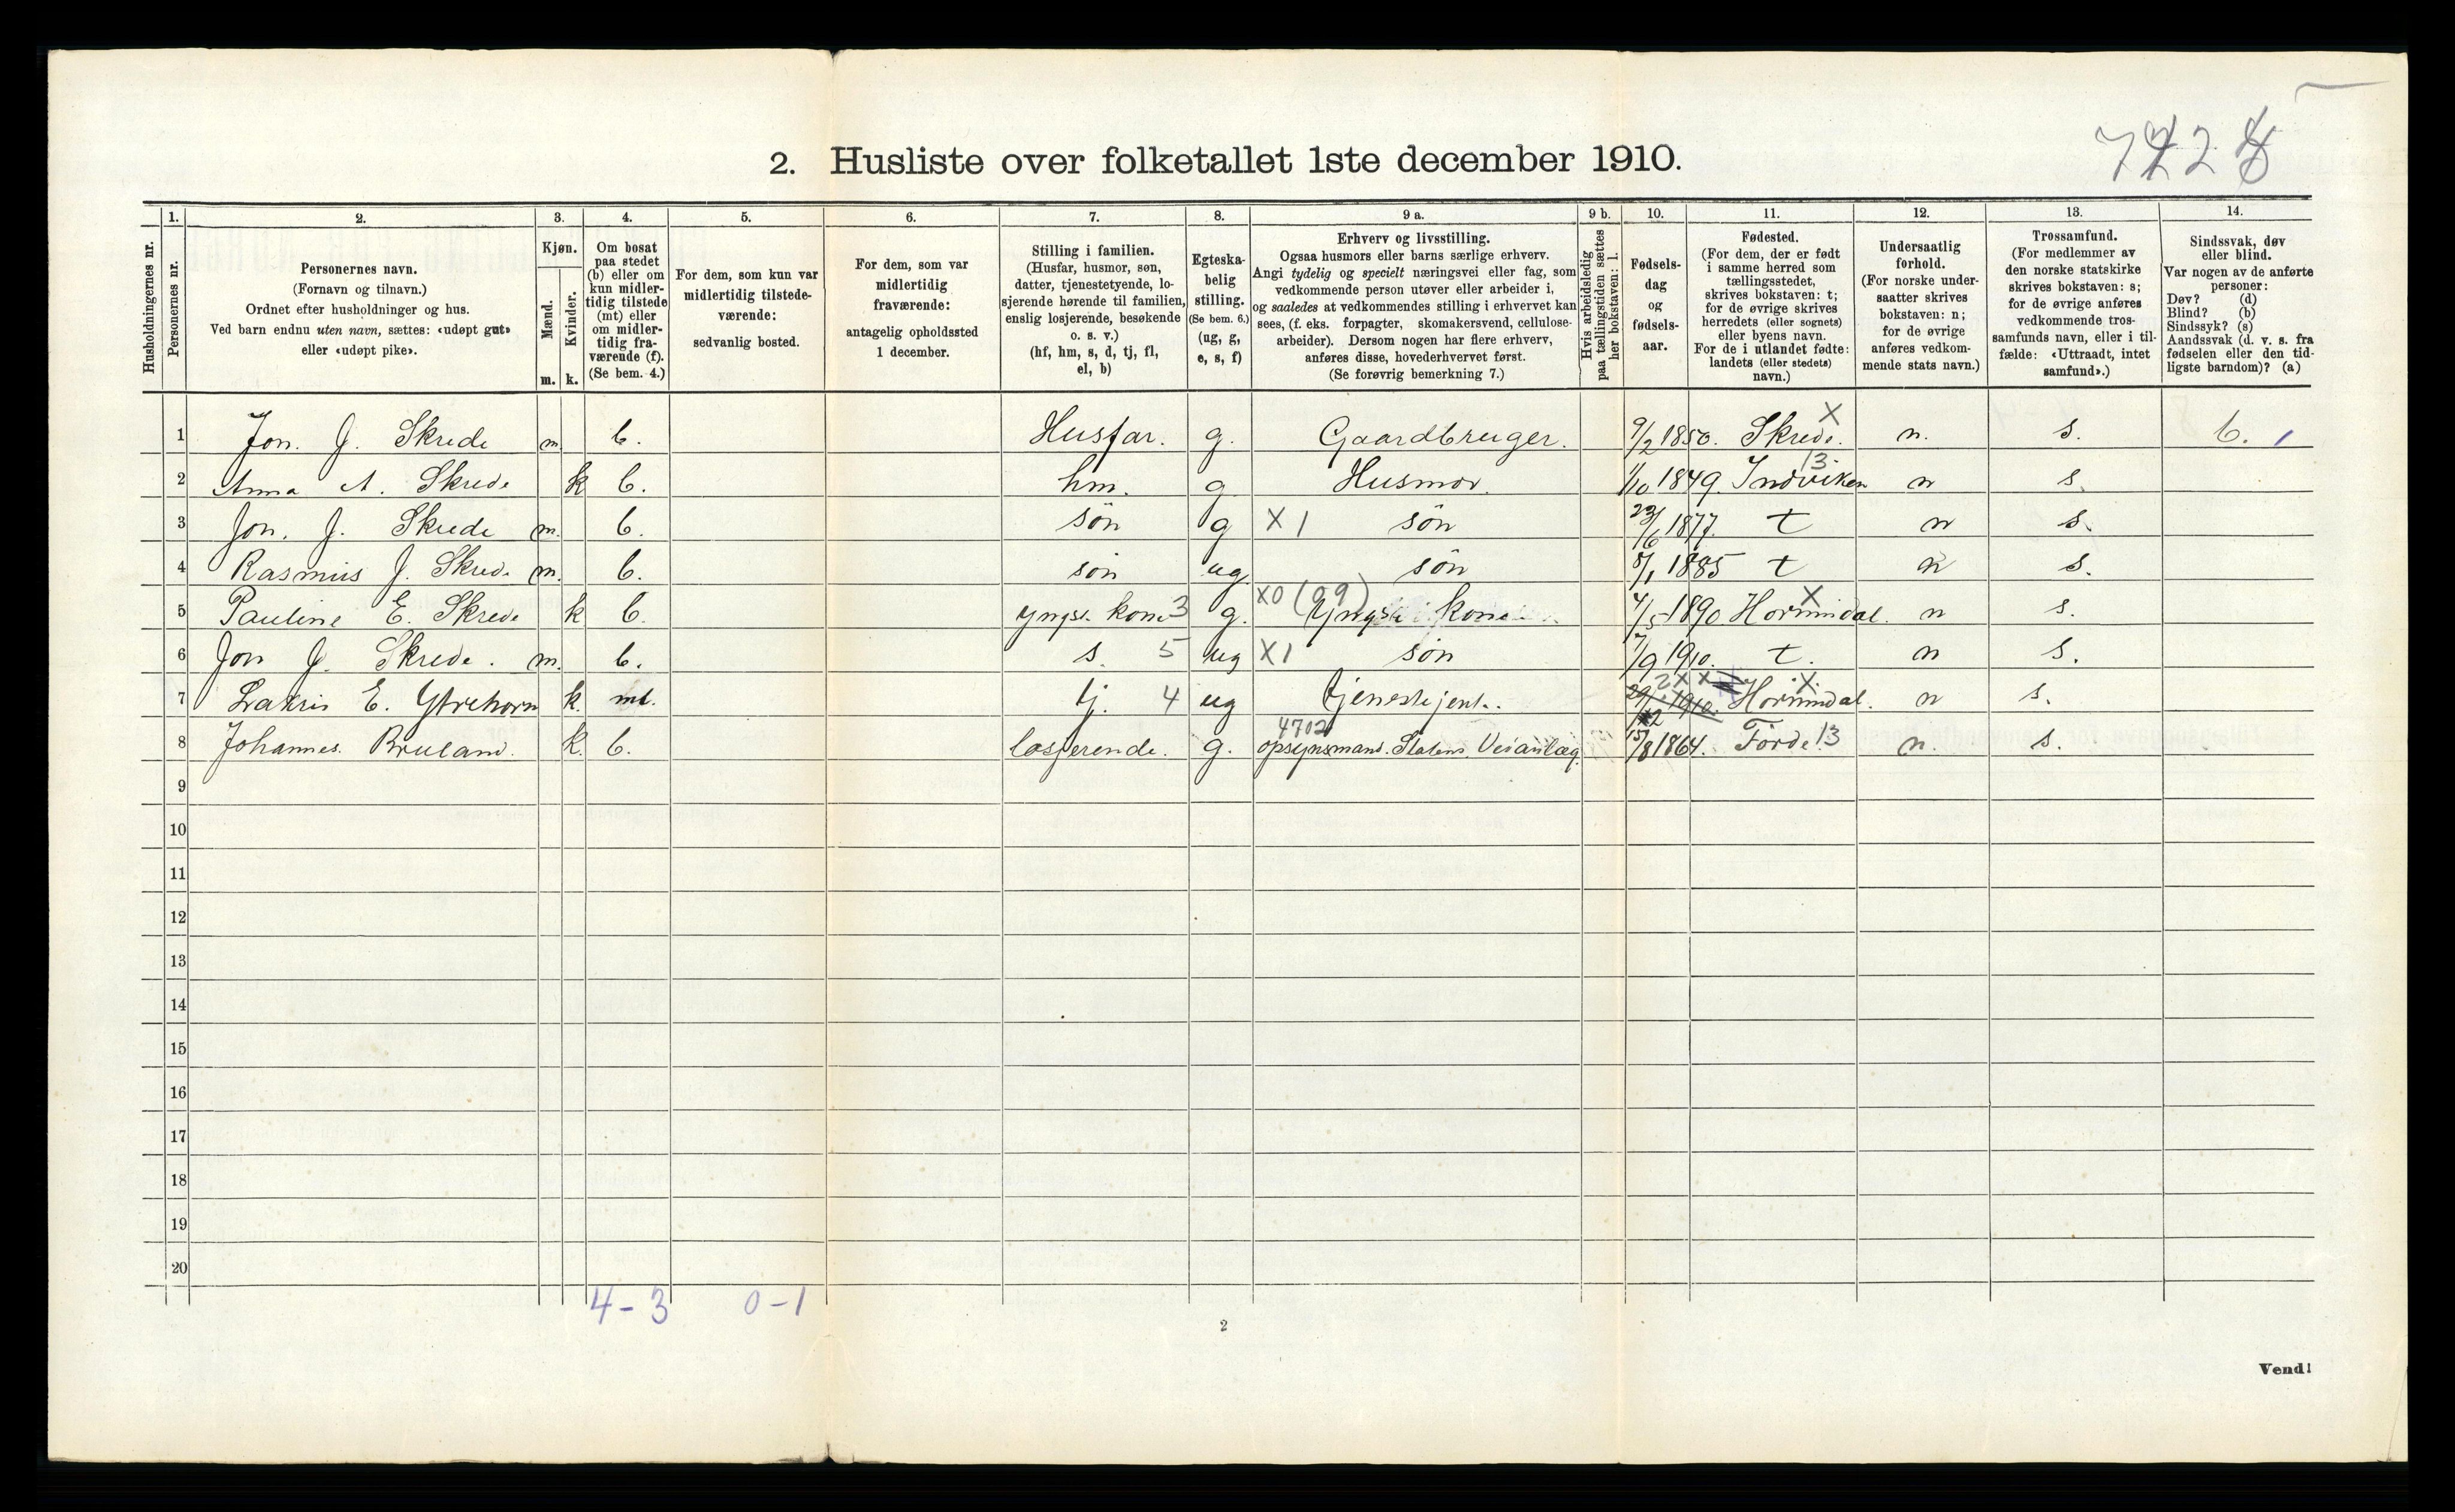 7228
2. Husliste over folketallet 1ste december 1910.
Husholdningernes nr.
1. Personernes nr.
2. Personernes navn. (Fornavn og tilnavn.) Ordnet efter husholdninger og hus. Ved barn endnu uten navn, sættes: «udøpt gut» eller «udøpt pike».
3. Kjøn. Mænd. m. Kvinder. k.
4. Om bosat paa stedet (b) eller om kun midlertidig tilstede (mt) eller om midlertidig fraværende (f). (Se bem. 4.)
5. For dem, som kun var midlertidig tilstedeværende: sedvanlig bosted.
6. For dem, som var midlertidig fraværende: antagelig opholdssted 1 december.
7. Stilling i familien. (Husfar, husmor, søn, datter, tjenestetyende, losjerende hørende til familien, enslig losjerende, besøkende o. s. v.) (hf, hm, s, d, tj, fl, el, b)
8. Egteskabelig stilling. (Se bem. 6.) (ug, g, e, s, f)
9 a. Erhverv og livsstilling. Ogsaa husmors eller barns særlige erhverv. Angi tydelig og specielt næringsvei eller fag, som vedkommende person utøver eller arbeider i, og saaledes at vedkommendes stilling i erhvervet kan sees, (f. eks. forpagter, skomakersvend, cellulosearbeider). Dersom nogen har flere erhverv, anføres disse, hovederhvervet først. (Se forøvrig bemerkning 7.)
9 b. Hvis arbeidsledig paa tællingstiden sættes her bokstaven: l.
10. Fødselsdag og fødselsaar.
11. Fødested. (For dem, der er født i samme herred som tællingsstedet, skrives bokstaven: t; for de øvrige skrives herredets (eller sognets) eller byens navn. For de i utlandet fødte: landets (eller stedets) navn.)
12. Undersaatlig forhold. (For norske undersaatter skrives bokstaven: n; for de øvrige anføres vedkommende stats navn.)
13. Trossamfund. (For medlemmer av den norske statskirke skrives bokstaven: s; for de øvrige anføres vedkommende trossamfunds navn, eller i tilfælde: «Uttraadt, intet samfund».)
14. Sindssvak, døv eller blind. Var nogen av de anførte personer: Døv? (d) Blind? (b) Sindssyk? (s) Aandssvak (d. v. s. fra fødselen eller den tidligste barndom)? (a)
1 Jon. J. Skrede m. b. Husfar. g. Gaardbruger. 9/2 1850. Skrede. X n. s. b. 1
2 Anna A. Skrede k b. hm. g Husmor. 1/10 1849. Indviken 13 n s.
3 Jon. J. Skrede m. b. søn g X 1 søn 23/6 1877. t n s.
4 Rasmus J. Skrede m. b. søn ug. søn 8/1 1885 t n s.
5 Pauline E. Skrede k b. yngst. kone 3 g. X0 (09) Yngste kone 4/5 1890. Hornindal. X n s.
6 Jon J. Skrede. m. b. s. 5 ug X1 søn 7/9 1910. t. n s.
7 E. Ytrehorn k. mt. tj. 4 ug tjenestejente. Hornindal. X n s.
8 Johannes. Bruland. k. b. losjerende. g. 4702 opsynsmand. Statens Veianlæg. 15/8 1864. Førde 13 n. s.
9
10
11
12
13
14
15
16
17
18
19
20
4-3 0-1
2
Vend!